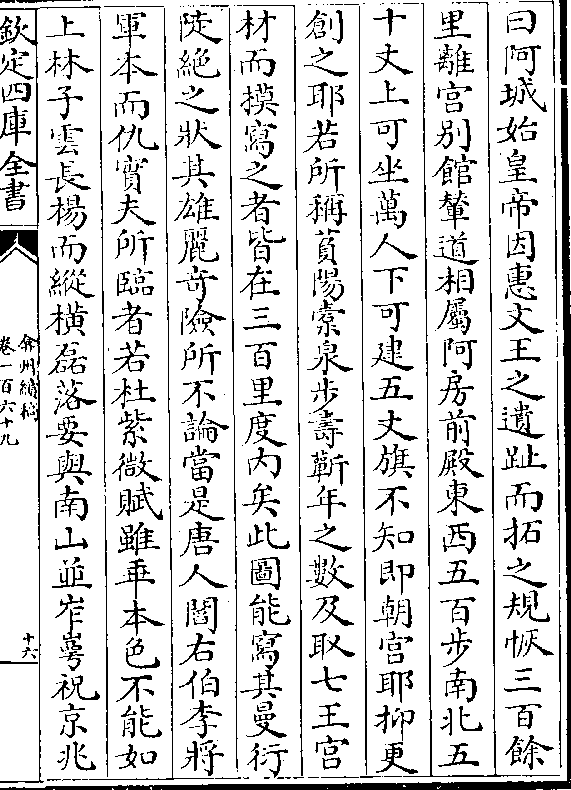 曰阿城始皇帝因惠文王之遺趾而拓之規恢三百餘
里離宫别館輦道相屬阿房前殿東西五百步南北五
十丈上可坐萬人下可建五丈旗不知即朝宫耶抑更
創之耶若所稱萯陽橐泉步壽蘄年之數及取七王宫
材而摸寫之者皆在三百里度内矣此圖能寫其曼衍
陡絶之狀其雄麗奇險所不論當是唐人閻右伯李將
軍本而仇實夫所臨者若杜紫微賦雖再本色不能如
上林子雲長楊而縱横磊落要與南山並岞崿祝京兆
欽定四庫全書
弇州續稿
卷一百六十九
十六